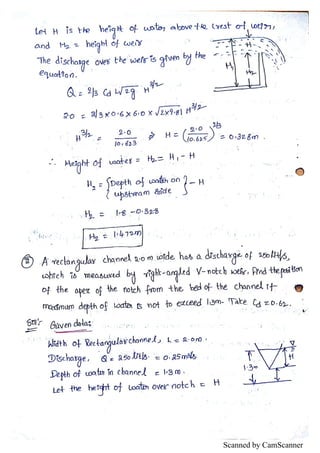 Let H is the height of water above the crest of weir,
and H₂ = height of weir
The discharge over the weir is given by the
equation.
Q = 2/3 Cd L√2g H^3/2
2.0 = 2/3 × 0.6 × 6.0 × √2×9.81 H^3/2
H^3/2 = 2.0/10.623 ⇒ H = (2.0/10.625)^2/3 = 0.328m.
∴ Height of water = H₂ = H₁ - H
H₂ = {Depth of water on upstream side} - H
H₂ = 1.8 - 0.328
H₂ = 1.472m
H₁
H₂
② A rectangular channel 2.0 m wide has a discharge of 250 lit/s,
which is measured by right-angled V-notch weir. Find the position
of the apex of the notch from the bed of the channel if
maximum depth of water is not to exceed 1.3m. Take Cd = 0.62.
Sol:- Given data:
Width of Rectangular channel, L = 2.0m.
Discharge, Q = 250 lit/s = 0.25 m³/s
Depth of water in channel = 1.3m.
Let the height of water over notch = H
1.3m
H
Scanned by CamScanner